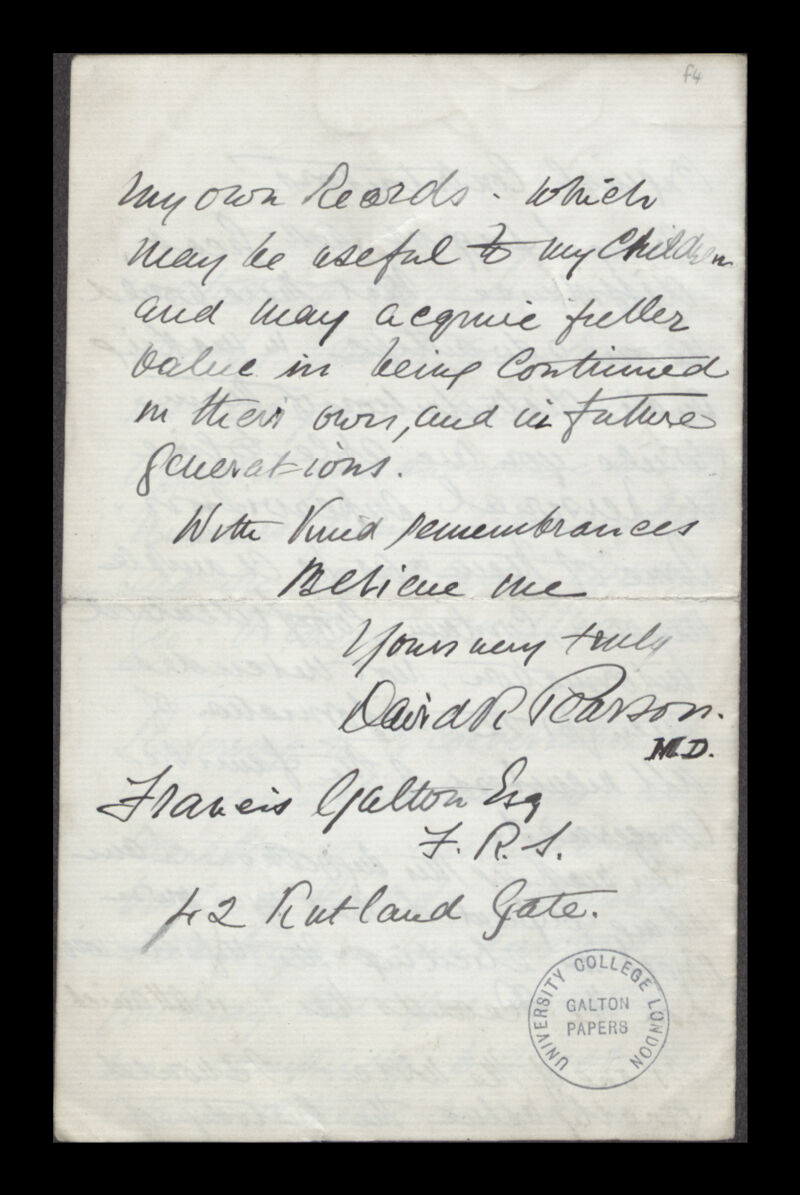 f4
my own Records - which
may be useful to my Children
and may acquire fuller
value in being Continued
in their own, and in future
generations.
With Kind remembrances
Believe me
Yours very truly
David R Pearson.
M.D.
Francis Galton Esq
F. R. S.
42 Rutland Gate.
UNIVERSITY COLLEGE LONDON
GALTON
PAPERS